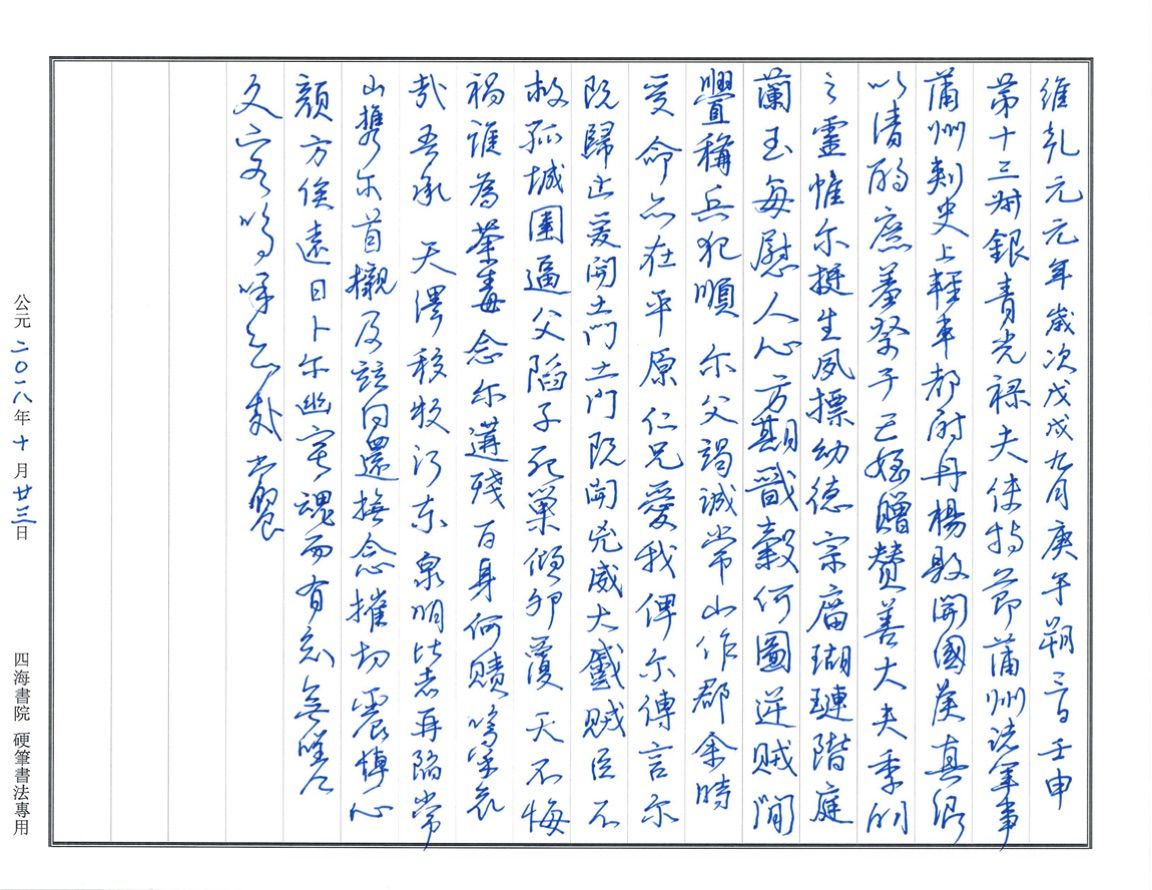 維乾元元年歲次戊戌九月庚午朔三日壬申
第十三叔銀青光祿夫使持節蒲州諸軍事
蒲州刺史上輕車都尉丹楊縣開國侯真卿
以清酌庶羞祭于亡姪贈贊善大夫季明
之靈惟爾挺生夙摽幼德宗廟瑚璉階庭
蘭玉每慰人心方期戩穀何圖逆賊閒
舋稱兵犯順 尔父竭誠常山作郡余時
受命亦在平原仁兄愛我俾尔傳言尔
既歸止爰開土門土門既開兇威大蹙賊臣不
救孤城圍逼父陷子死巢傾卵覆天不悔
禍誰為荼毒念尔遘殘百身何贖嗚呼哀
哉吾承 天澤移牧河東泉明比者再陷常
山攜尔首櫬及該同還撫念摧切震悼心
顏方俟遠日卜尔幽宅魂而有知無嗟久
久客嗚呼哀哉尚饗
公元二〇一八年十月廿三日
四海書院 硬筆書法專用